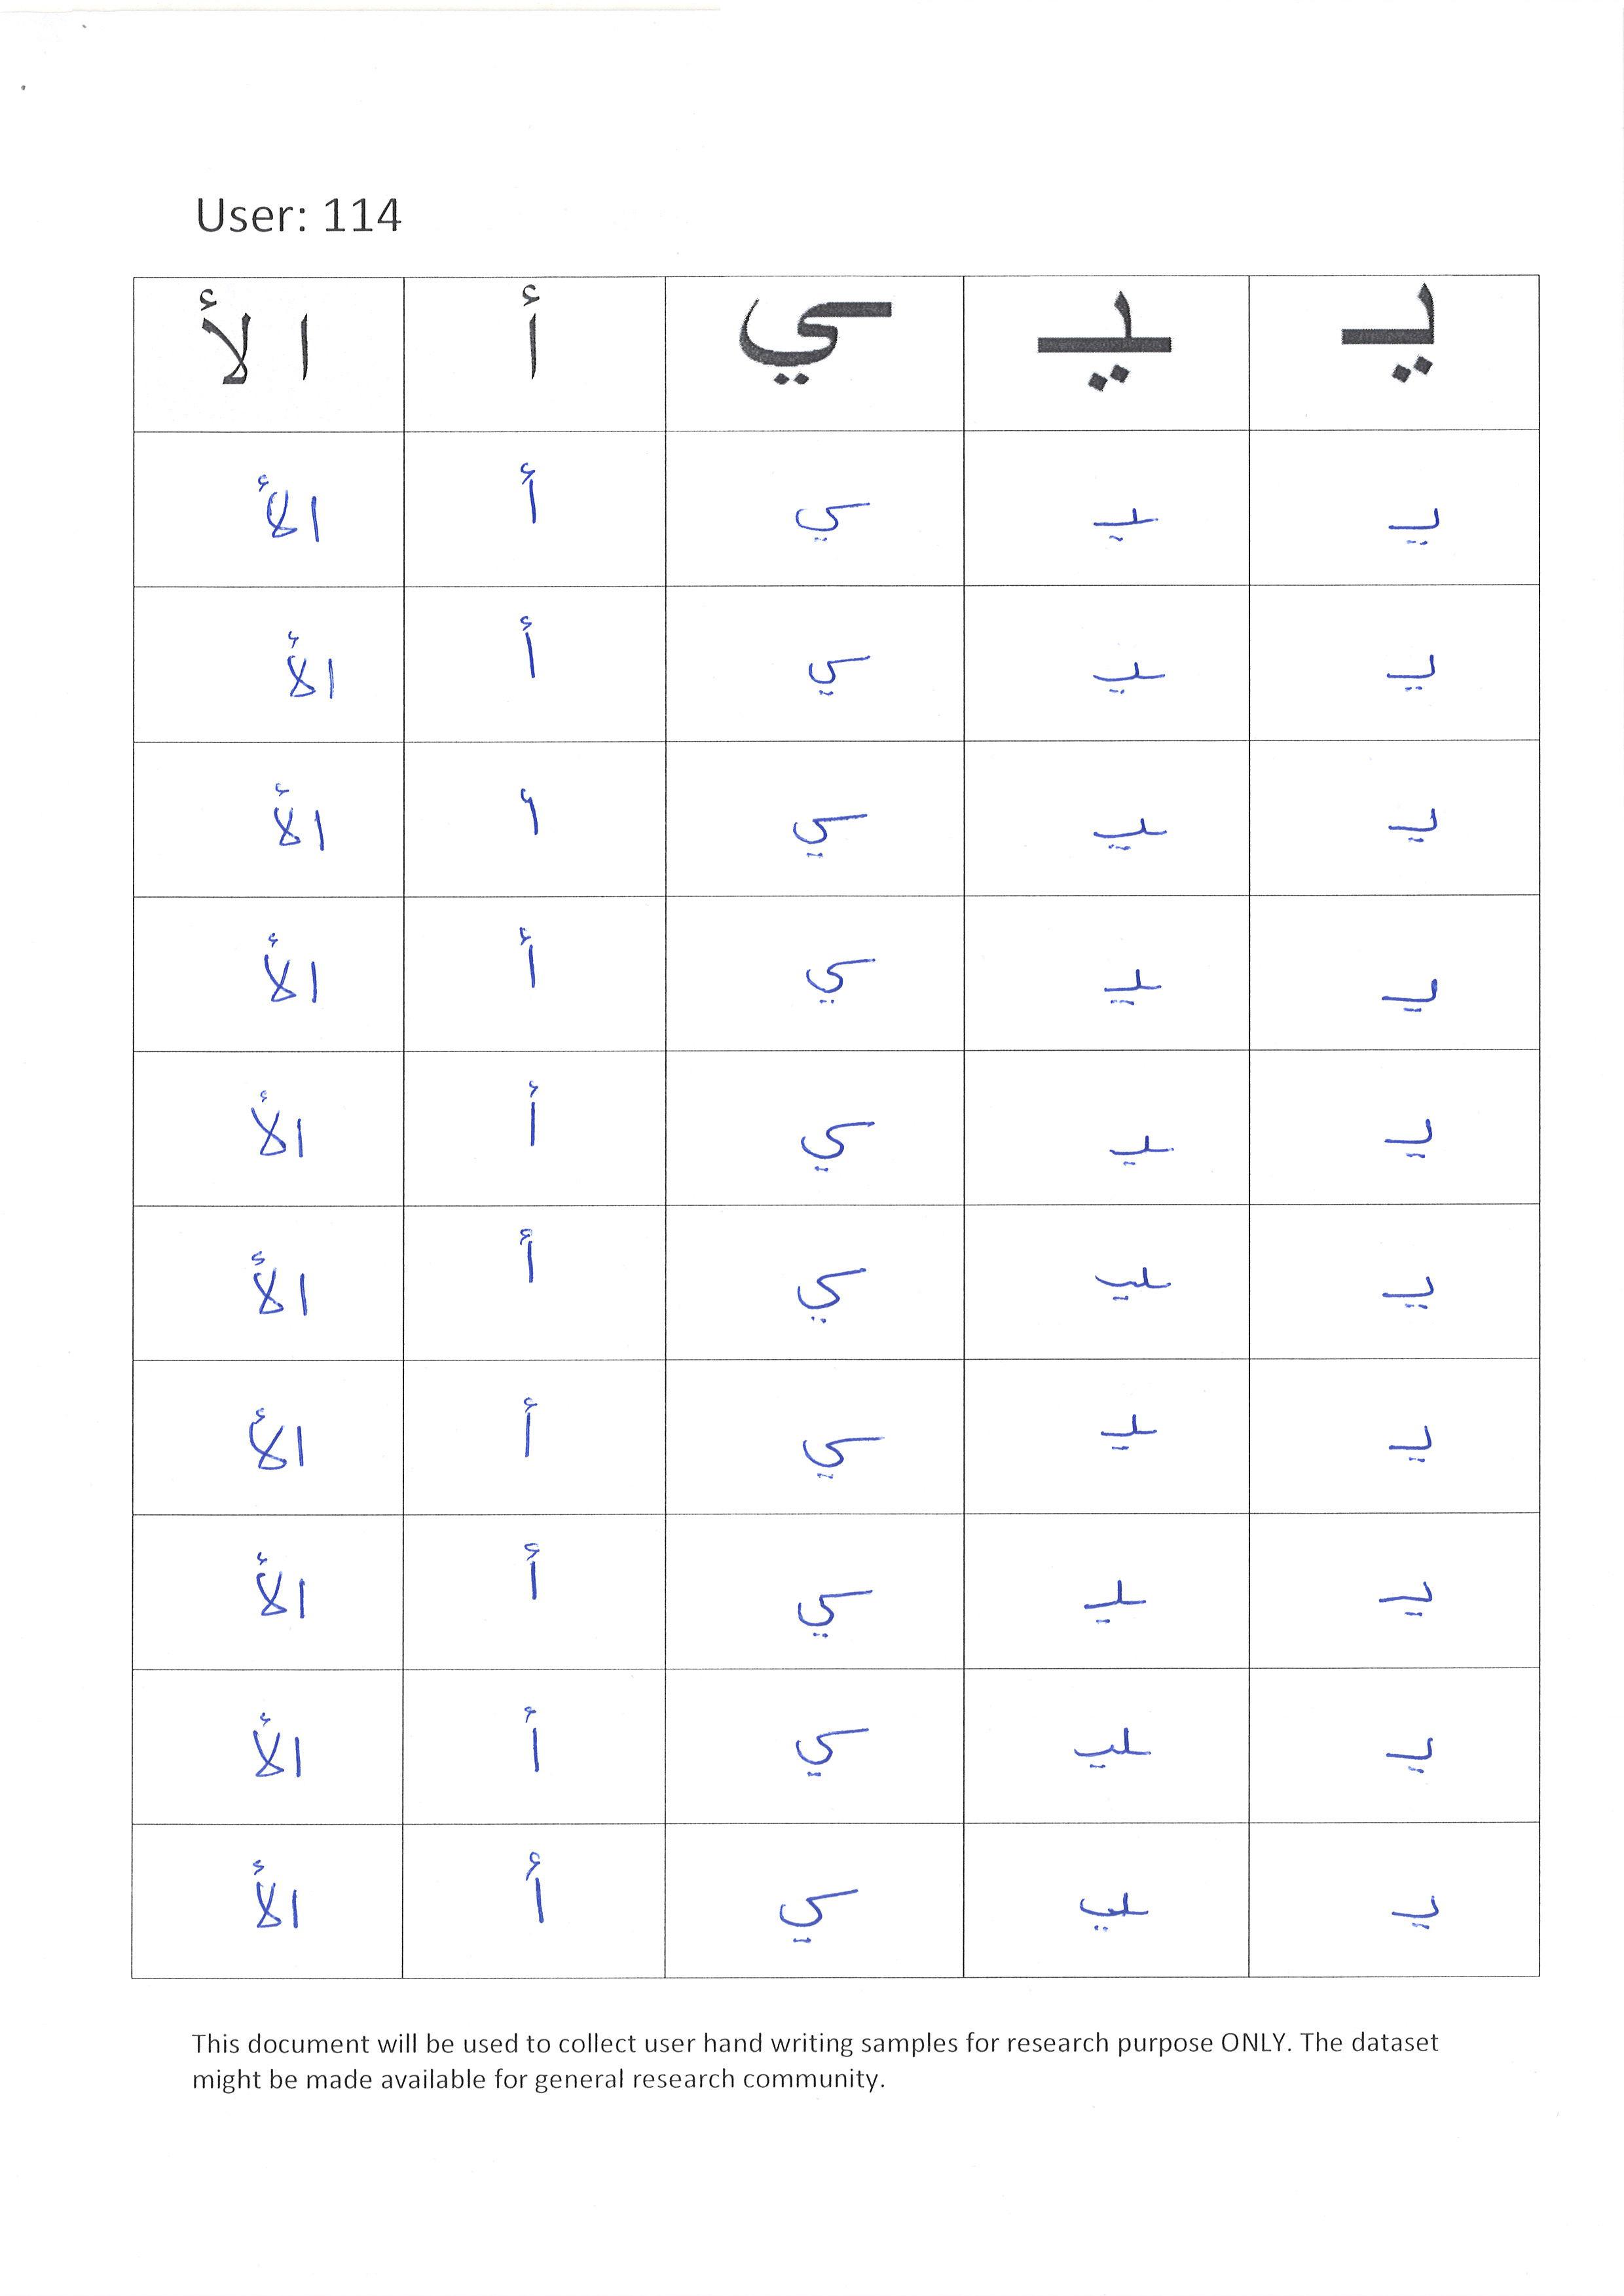 User: 114
يـ ـيـ ـي أ ا لأ
يـ ـيـ ـي أ الأ
يـ ـيـ ـي أ الأ
يـ ـيـ ـي أ الأ
يـ ـيـ ـي أ الأ
يـ ـيـ ـي أ الأ
يـ ـيـ ـي أ الأ
يـ ـيـ ـي أ الأ
يـ ـيـ ـي أ الأ
يـ ـيـ ـي أ الأ
يـ ـيـ ـي أ الأ
This document will be used to collect user hand writing samples for research purpose ONLY. The dataset
might be made available for general research community.